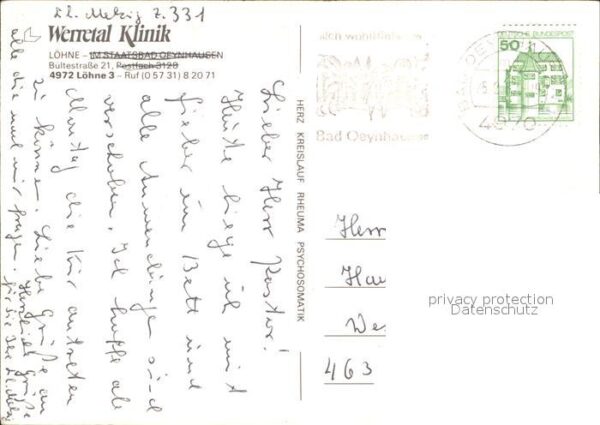 El. Metzig Z. 331
Werretal Klinik
LÖHNE – IM STAATSBAD OEYNHAUSEN
Bultestraße 21, Postfach 3120
4972 Löhne 3 – Ruf (0 57 31) 8 20 71
Lieber Herr Pastor!
Heute liege ich mit
Fieber im Bett und
alle Anwendungen sind
verschoben. Ich hoffe ab
Montag die Kur antreten
zu können. Liebe Grüße an
alle die nach mir fragen.
Herzliche Grüße
für Sie Ihre El. Metzig
HERZ KREISLAUF RHEUMA PSYCHOSOMATIK
sich wohlfühlen
Bad Oeynhausen
4970
DEUTSCHE BUNDESPOST
50
Herr
Hau
We
463
privacy protection
Datenschutz